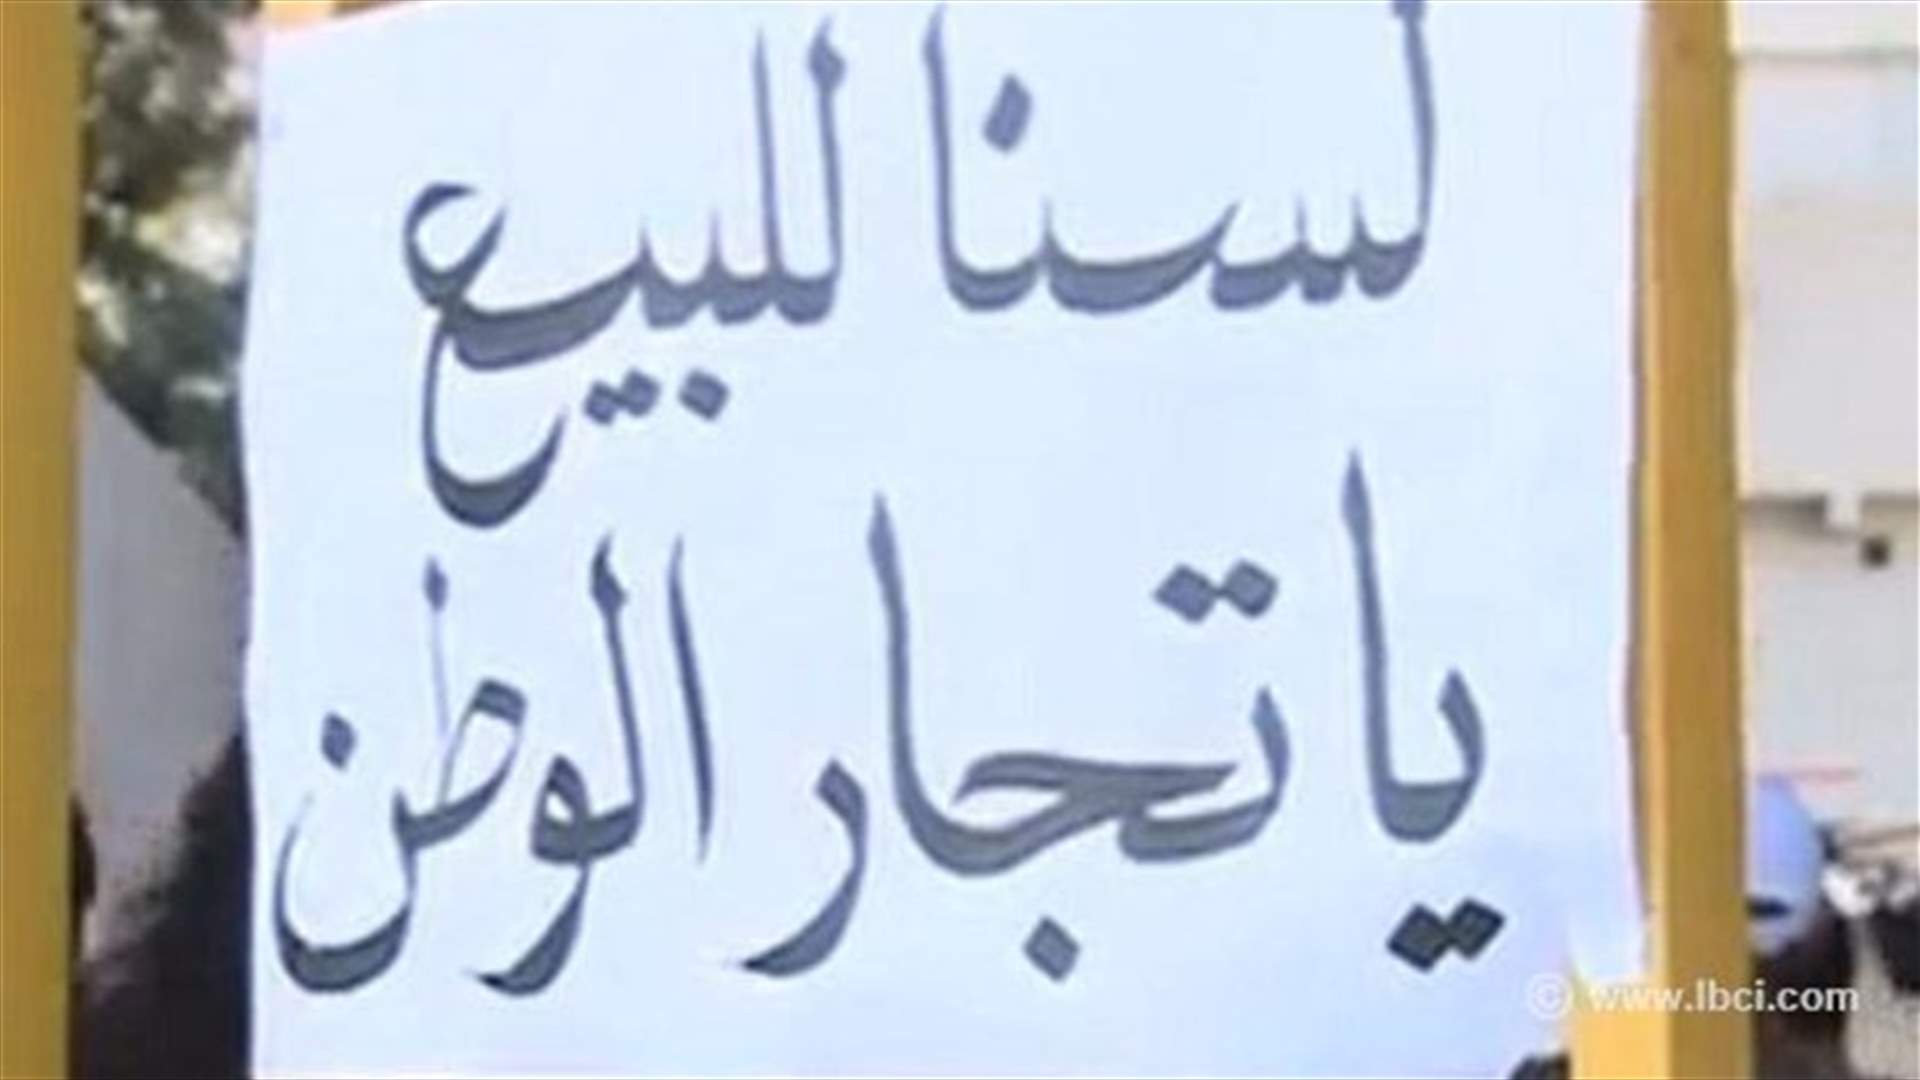 لسنا للبيع
يا تجار الوطن
© www.lbci.com